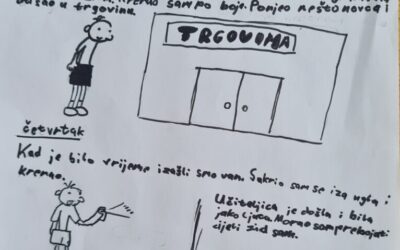 krenuo sam po boje. Ponjeo nešto novca i
ušao u trgovinu.
TRGOVINA
četvrtak
Kad je bilo vrijeme izašli smo van. Sakrio sam se iza ugla i
krenuo.
Učiteljica je došla i bila
jako ljuta. Morao sam prebojati
cijeli zid sam.